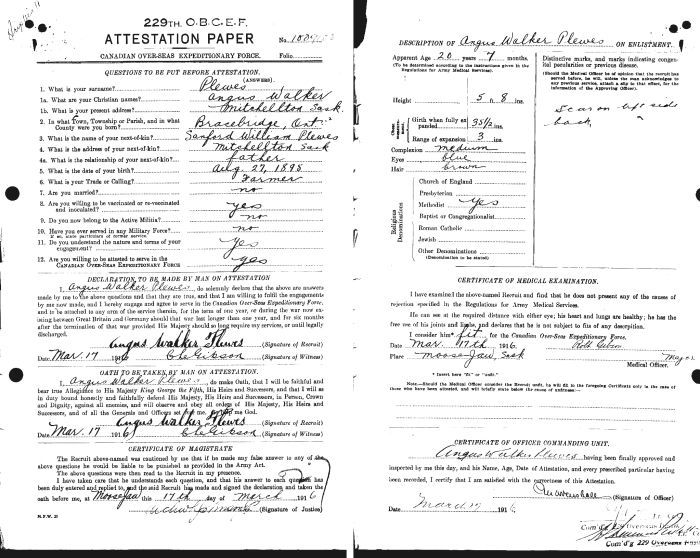 229TH. O.B.C.E.F.
ATTESTATION PAPER
No.
CANADIAN OVER-SEAS EXPEDITIONARY FORCE.
Folio
QUESTIONS TO BE PUT BEFORE ATTESTATION.
(ANSWERS).
1. What is your surname? Plewes
1a. What are your Christian names? Angus Walker
1b. What is your present address? Mitchellton Sask.
2. In what Town, Township or Parish, and in what County were you born? Bracebridge, Ont.
3. What is the name of your next-of-kin? Sanford William Plewes
4. What is the address of your next-of-kin? Mitchellton Sask
4a. What is the relationship of your next-of-kin? father
5. What is the date of your birth? Aug. 27, 1895
6. What is your Trade or Calling? Farmer
7. Are you married? no
8. Are you willing to be vaccinated or re-vaccinated and inoculated? yes
9. Do you now belong to the Active Militia? no
10. Have you ever served in any Military Force? no
If so, state particulars of former service.
11. Do you understand the nature and terms of your engagement? yes
12. Are you willing to be attested to serve in the CANADIAN OVER-SEAS EXPEDITIONARY FORCE? yes
DECLARATION TO BE MADE BY MAN ON ATTESTATION
I, Angus Walker Plewes, do solemnly declare that the above are answers
made by me to the above questions and that they are true, and that I am willing to fulfil the engagements
by me now made, and I hereby engage and agree to serve in the Canadian Over-Seas Expeditionary Force,
and to be attached to any arm of the service therein, for the term of one year, or during the war now existing
between Great Britain and Germany should that war last longer than one year, and for six months
after the termination of that war provided His Majesty should so long require my services, or until legally
discharged.
Angus Walker Plewes (Signature of Recruit)
Date Mar. 17 1916 (Signature of Witness)
OATH TO BE TAKEN BY MAN ON ATTESTATION.
I, Angus Walker Plewes, do make Oath, that I will be faithful and
bear true Allegiance to His Majesty King George the Fifth, His Heirs and Successors, and that I will as
in duty bound honestly and faithfully defend His Majesty, His Heirs and Successors, in Person, Crown
and Dignity, against all enemies, and will observe and obey all orders of His Majesty, His Heirs and
Successors, and of all the Generals and Officers set over me. So help me God.
Angus Walker Plewes (Signature of Recruit)
Date Mar. 17 1916 (Signature of Witness)
CERTIFICATE OF MAGISTRATE
The Recruit above-named was cautioned by me that if he made any false answer to any of the
above questions he would be liable to be punished as provided in the Army Act.
The above questions were then read to the Recruit in my presence.
I have taken care that he understands each question, and that his answer to each question has
been duly entered as replied to, and the said Recruit has made and signed the declaration and taken the
oath before me, at Moose Jaw this 17th day of March 1916
(Signature of Justice)
DESCRIPTION OF Angus Walker Plewes ON ENLISTMENT.
Apparent Age 20 years 7 months.
(To be determined according to the instructions given in the Regulations for Army Medical Services.)
Distinctive marks, and marks indicating congenital peculiarities or previous disease.
(Should the Medical Officer be of opinion that the recruit has served before, he will, unless the man acknowledges to any previous service, attach a slip to that effect, for the information of the Approving Officer).
Height 5 ft. 8 ins.
Scar on left side
back.
Girth when fully expanded 35 1/2 ins.
Range of expansion 3 ins.
Complexion medium
Eyes blue
Hair brown
Religious Denominations
Church of England
Presbyterian
Methodist yes
Baptist or Congregationalist
Roman Catholic
Jewish
Other Denominations
(Denomination to be stated)
CERTIFICATE OF MEDICAL EXAMINATION.
I have examined the above-named Recruit and find that he does not present any of the causes of
rejection specified in the Regulations for Army Medical Services.
He can see at the required distance with either eye; his heart and lungs are healthy; he has the
free use of his joints and limbs, and declares that he is not subject to fits of any description.
I consider him* fit for the Canadian Over-Seas Expeditionary Force.
Date Mar. 17th 1916.
Place Moose Jaw, Sask
Major
Medical Officer.
* Insert here "fit" or "unfit."
Note.—Should the Medical Officer consider the Recruit unfit, he will fill in the foregoing Certificate only in the case of those who have been attested, and will briefly state below the cause of unfitness:—
CERTIFICATE OF OFFICER COMMANDING UNIT.
Angus Walker Plewes having been finally approved and
inspected by me this day, and his Name, Age, Date of Attestation, and every prescribed particular having
been recorded, I certify that I am satisfied with the correctness of this Attestation.
(Signature of Officer)
Date March 17 1916
Com'd'g 229 OVERSEAS